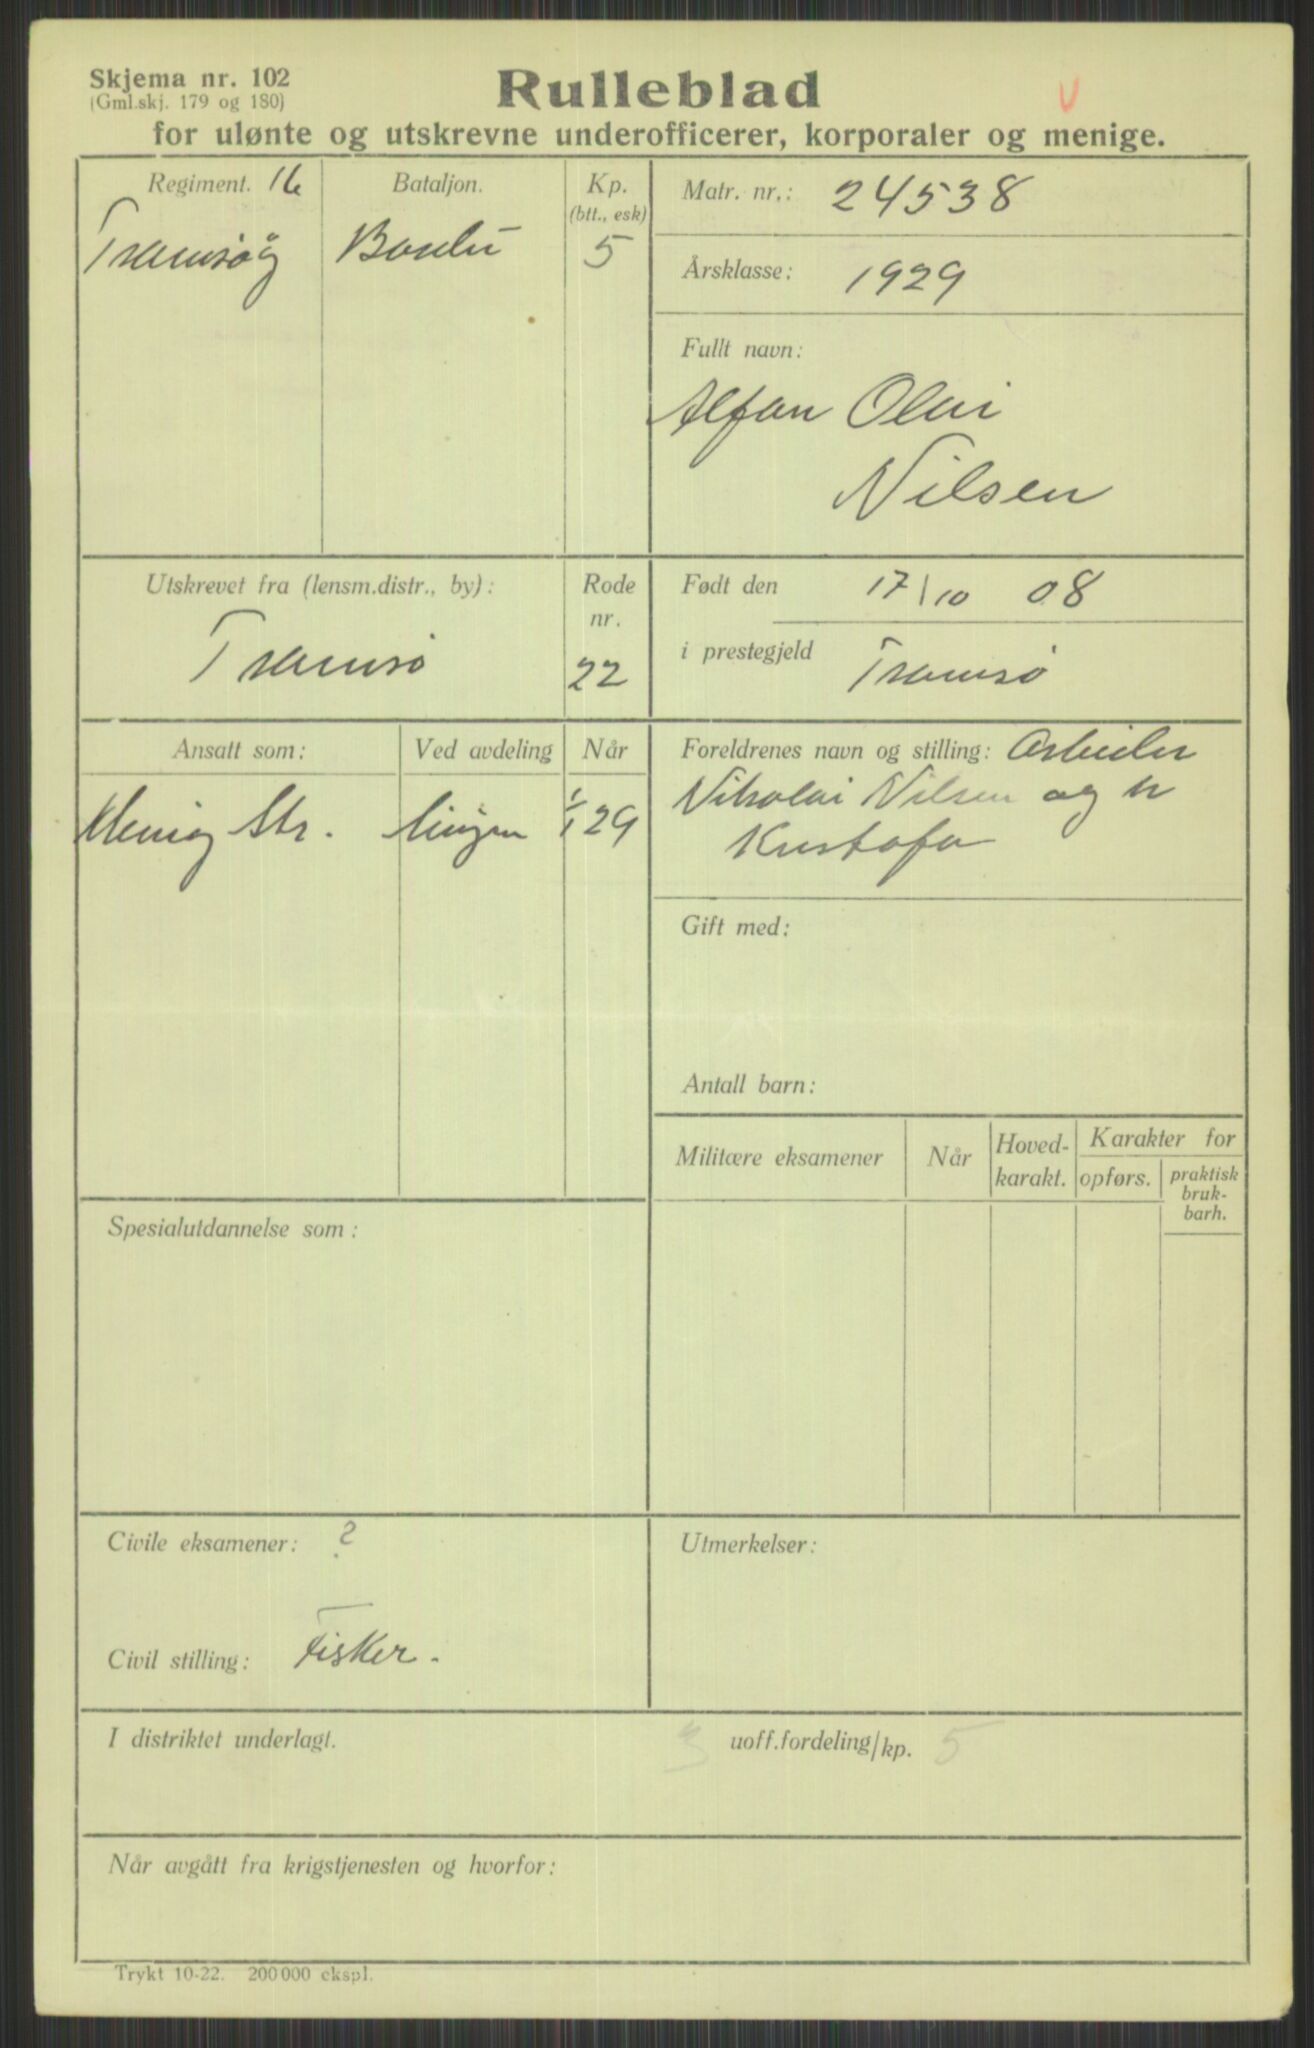 Skjema nr. 102
(Gml.skj. 179 og 180)
Rulleblad
for ulønte og utskrevne underofficerer, korporaler og menige.
Regiment. 16
Tromsø
Bataljon.
Kp.
(btt., esk)
5
Matr. nr.: 24538
Årsklasse: 1929
Fullt navn:
Alfon Olai
Nilsen
Utskrevet fra (lensm.distr., by):
Tromsø
Rode
nr.
22
Født den 17/10 08
i prestegjeld Tromsø
Ansatt som:
Ved avdeling
Når
Menig Str. Lingen 1/1 29
Foreldrenes navn og stilling: Arbeider
Nikolai Nilsen og h
Kustafa
Gift med:
Antall barn:
Militære eksamener
Når
Hoved-
karakt.
Karakter for
opførs.
praktisk
bruk-
barh.
Spesialutdannelse som:
Civile eksamener: ?
Civil stilling: Fisker.
Utmerkelser:
I distriktet underlagt. 3 uoff.fordeling/kp. 5
Når avgått fra krigstjenesten og hvorfor:
Trykt 10-22. 200 000 ekspl.